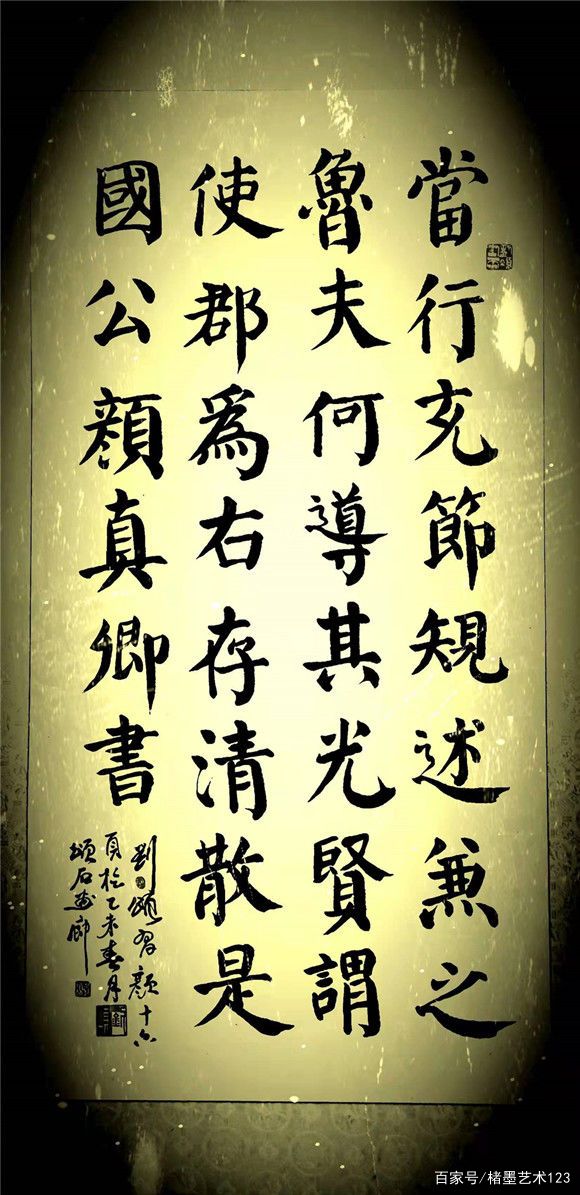 當行充節規述兼之
魯夫何導其光賢謂
使郡為右存清散是
國公顏真卿書
劉頌習顏十六
頁於乙未春月
頌石畫廊
百家号/楮墨艺术123